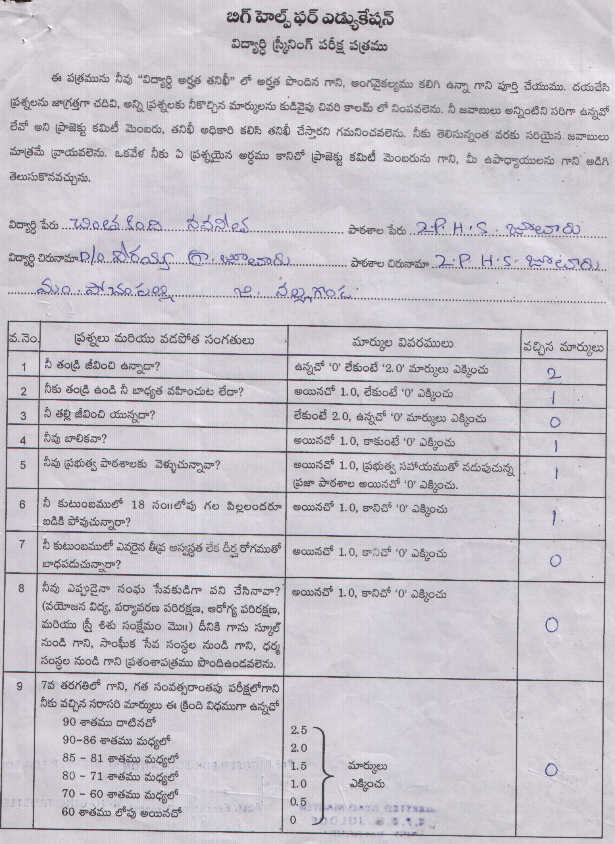 బిగ్ హెల్ప్ ఫర్ ఎడ్యుకేషన్
విద్యార్థి స్క్రీనింగ్ పరీక్ష పత్రము
ఈ పత్రమును నీవు "విద్యార్థి అర్హత తనిఖీ" లో అర్హత పొందిన గాని, అంగవైకల్యము కలిగి ఉన్నా గాని పూర్తి చేయుము. దయచేసి
ప్రశ్నలను జాగ్రత్తగా చదివి, అన్ని ప్రశ్నలకు నీకొచ్చిన మార్కులను కుడివైపు చివరి కాలమ్ లో నింపవలెను. నీ జవాబులు అన్నింటిని సరిగా ఉన్నవో
లేవో అని ప్రాజెక్టు కమిటీ మెంబరు, తనిఖీ అధికారి కలిసి తనిఖీ చేస్తారని గమనించవలెను. నీకు తెలిసున్నంత వరకు సరియైన జవాబులు
మాత్రమే వ్రాయవలెను. ఒకవేళ నీకు ఏ ప్రశ్నయైన అర్థము కానిచో ప్రాజెక్టు కమిటీ మెంబరును గాని, మీ ఉపాధ్యాయులను గాని అడిగి
తెలుసుకొనవచ్చును.
విద్యార్థి పేరు చింతకింది నవనీత పాఠశాల పేరు Z.P.H.S. జూలూరు
విద్యార్థి చిరునామా D/o గ్రా. జూలూరు పాఠశాల చిరునామా Z.P.H.S. జూలూరు
మం. పోచంపల్లి జి. నల్లగొండ
వ.నెం. ప్రశ్నలు మరియు వడపోత సంగతులు మార్కుల వివరములు వచ్చిన మార్కులు
1 నీ తండ్రి జీవించి ఉన్నాడా? ఉన్నచో '0' లేకుంటే '2.0' మార్కులు ఎక్కించు 2
2 నీకు తండ్రి ఉండి నీ బాధ్యత వహించుట లేదా? అయినచో 1.0, లేకుంటే '0' ఎక్కించు 1
3 నీ తల్లి జీవించి యున్నదా? లేకుంటే 2.0, ఉన్నచో '0' మార్కులు ఎక్కించు 0
4 నీవు బాలికవా? అయినచో 1.0, కాకుంటే '0' ఎక్కించు 1
5 నీవు ప్రభుత్వ పాఠశాలకు వెళ్ళుచున్నావా? అయినచో 1.0, ప్రభుత్వ సహాయముతో నడుపుచున్న 1
ప్రజా పాఠశాల అయినచో '0' ఎక్కించు.
6 నీ కుటుంబములో 18 సం॥లోపు గల పిల్లలందరూ అయినచో 1.0, కానిచో '0' ఎక్కించు 1
బడికి పోవుచున్నారా?
7 నీ కుటుంబములో ఎవరైన తీవ్ర అస్వస్థత లేక దీర్ఘ రోగముతో అయినచో 1.0, కానిచో '0' ఎక్కించు 0
బాధపడుచున్నారా?
8 నీవు ఎప్పుడైనా సంఘ సేవకుడిగా పని చేసినావా? అయినచో 1.0, కానిచో '0' ఎక్కించు 0
(వయోజన విద్య, పర్యావరణ పరిరక్షణ, ఆరోగ్య పరిరక్షణ,
మరియు స్త్రీ శిశు సంక్షేమం మొ॥) దీనికి గాను స్కూల్
నుండి గాని, సాంఘీక సేవ సంస్థల నుండి గాని, ధర్మ
సంస్థల నుండి గాని ప్రశంశాపత్రము పొందిఉండవలెను.
9 7వ తరగతిలో గాని, గత సంవత్సరాంతపు పరీక్షలోగాని
నీకు వచ్చిన సరాసరి మార్కులు ఈ క్రింది విధముగా ఉన్నచో
90 శాతము దాటినచో 2.5
90-86 శాతము మధ్యలో 2.0
85 - 81 శాతము మధ్యలో 1.5 మార్కులు 0
80 - 71 శాతము మధ్యలో 1.0 ఎక్కించు
70 - 60 శాతము మధ్యలో 0.5
60 శాతము లోపు అయినచో 0